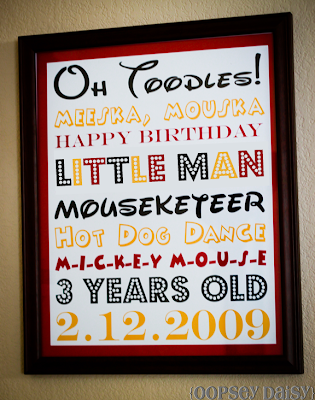 Oh Toodles!
MEESKA, MOUSKA
HAPPY BIRTHDAY
LITTLE MAN
MOUSEKETEER
HOT DOG DANCE
M-I-C-K-E-Y M-O-U-S-E
3 YEARS OLD
2.12.2009
{OOPSEY DAISY}